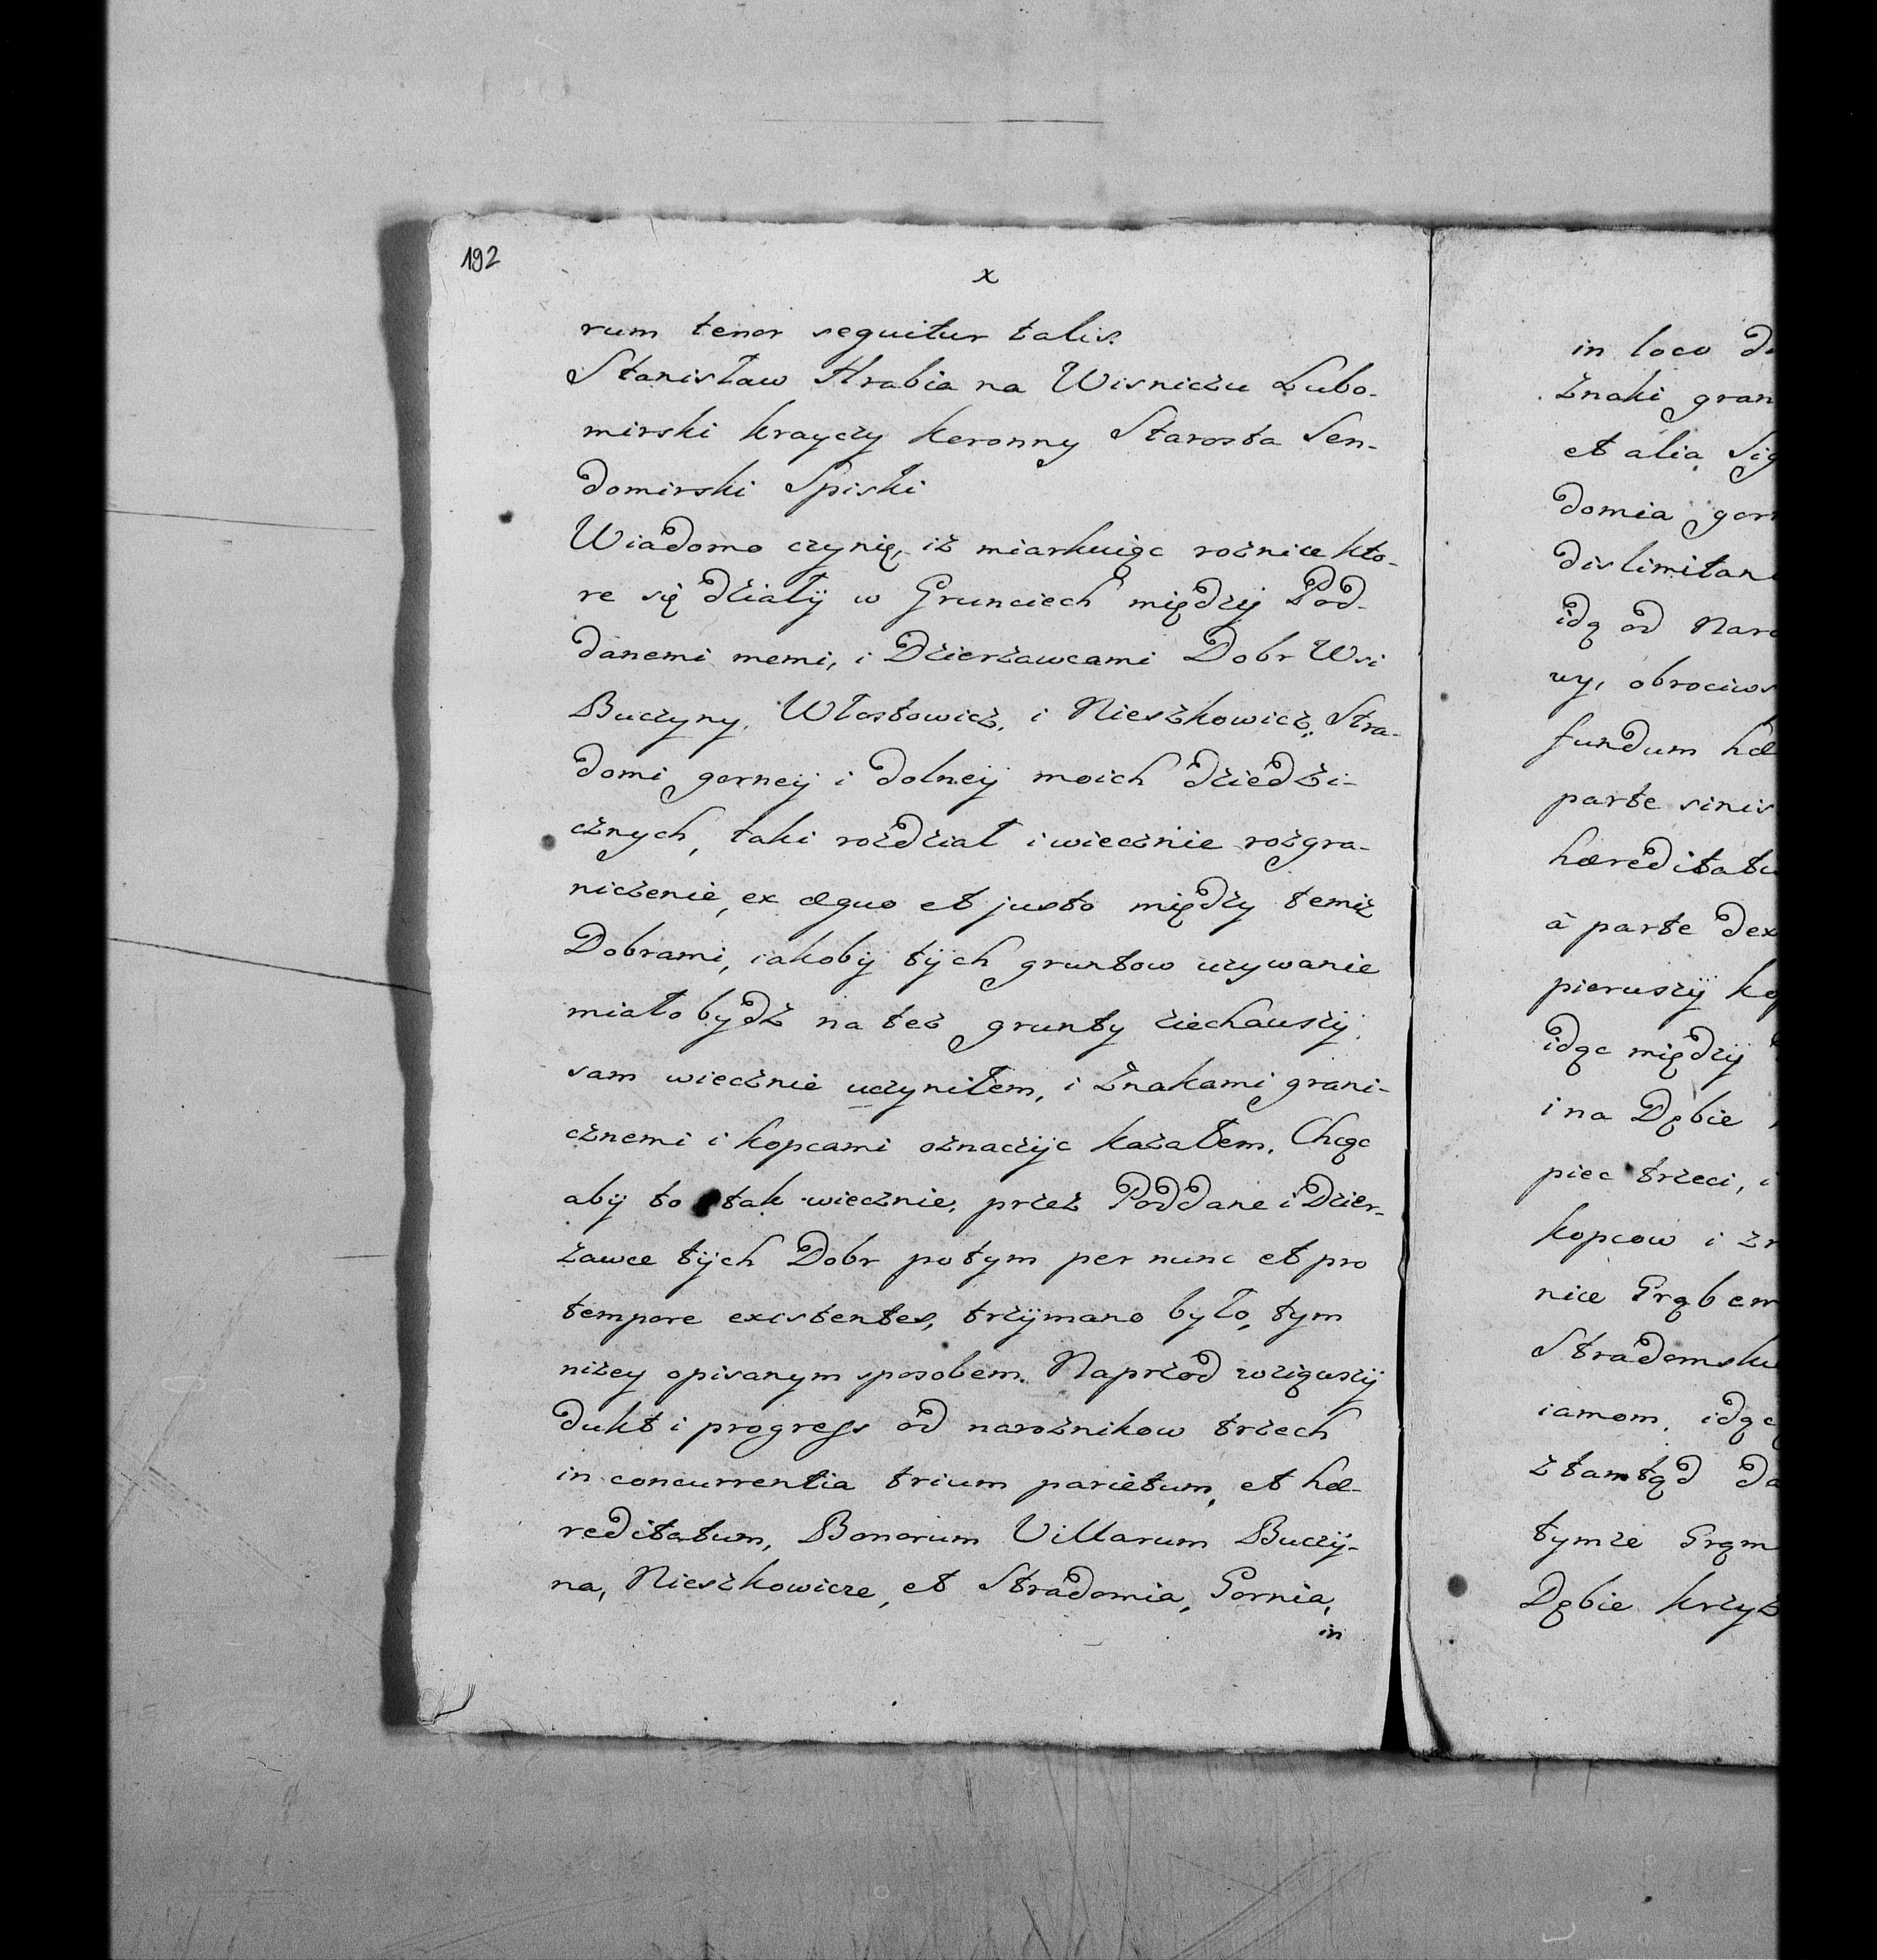 192
x
rum tenor sequitur talis.
Stanisław Hrabia na Wisniczu Lubo-
mirski krayczy koronny Starosta Sen-
domirski Spiski
Wiadomo czynię, iż miarkuiąc rożnice kto-
re się działÿ w Grunciech międzÿ Pod-
danemi memi, i Dzierżawcami Dobr Wsi
Buczyny, Włostowicz, i Nieszkowicz, Stra-
domi gorneÿ i dolneÿ moich dziedzi-
cznych, taki rozdział i wiecznie rozgra-
niczenie, ex æquo et justo między temiż
Dobrami, iakobÿ tÿch gruntow uzywanie
miało bydź na też grunty ziechawszÿ,
sam wiecznie uczyniłem, i znakami grani-
cznemi i kopcami oznaczÿc kazałem. Chcąc
abÿ to tak wiecznie, przez Poddane i Dzier-
żawce tÿch Dobr potym per nunc et pro
tempore existentes, trzÿmano było, tym
niżey opisanym sposobem. Naprzod wziąwszÿ
dukt i progress od narożnikow trzech
in concurrentia trium parietum, et hæ-
reditatum, Bonorum Villarum Buczÿ-
na, Nieszkowicze, et Stradomia, Gornia,
in
in loco
znaki gran
et alia Sig
domia gor
dislimitan
idą od Naro
wy, obrociws
fundum hæ
parte sinis
hæreditatu
à parte dex
pierwszÿ ko
idąc międzÿ
i na Dębie
piec trzeci, i
kopcow i zn
nice Grąbem
Stradomsku
iamom, idąc
ztamtąd do
tymże Grąm
Dębie krzyż